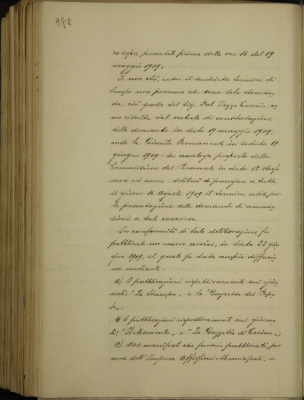 972
essere presentate prima delle ore 16 del 19
maggio 1909.
Se non che, entro il suddetto termine di
tempo non pervenne che una sola doman-
da, cioè quella del Sig. Dal Pozzo
me risulta dal verbale di constatazione
delle domande in data 19 maggio 1909,
onde la Giunta Permanente in seduta 19
giugno 1909 - su analoga proposta della
Commissione del Personale in data 12 stesso
mese ed anno - deliberò di prorogare a tutto
il giorno 16 Agosto 1909 il termine utile per
la presentazione delle domande di ammis-
sione a tale concorso.
In conformità di tale deliberazione fu
pubblicato un nuovo avviso, in data 23 giu-
gno 1909, al quale fu data ampia diffusio-
ne mediante:
a) 2 pubblicazioni rispettivamente sui gior-
nali: "La Stampa" e "la Gazzetta del Popo-
lo";
b) pubblicazioni rispettivamente sui giorna-
li: "Il Momento" e "La Gazzetta di Torino";
c) 300 manifesti che furono pubblicati per
cura dell'Impresa Affissioni Municipali, e